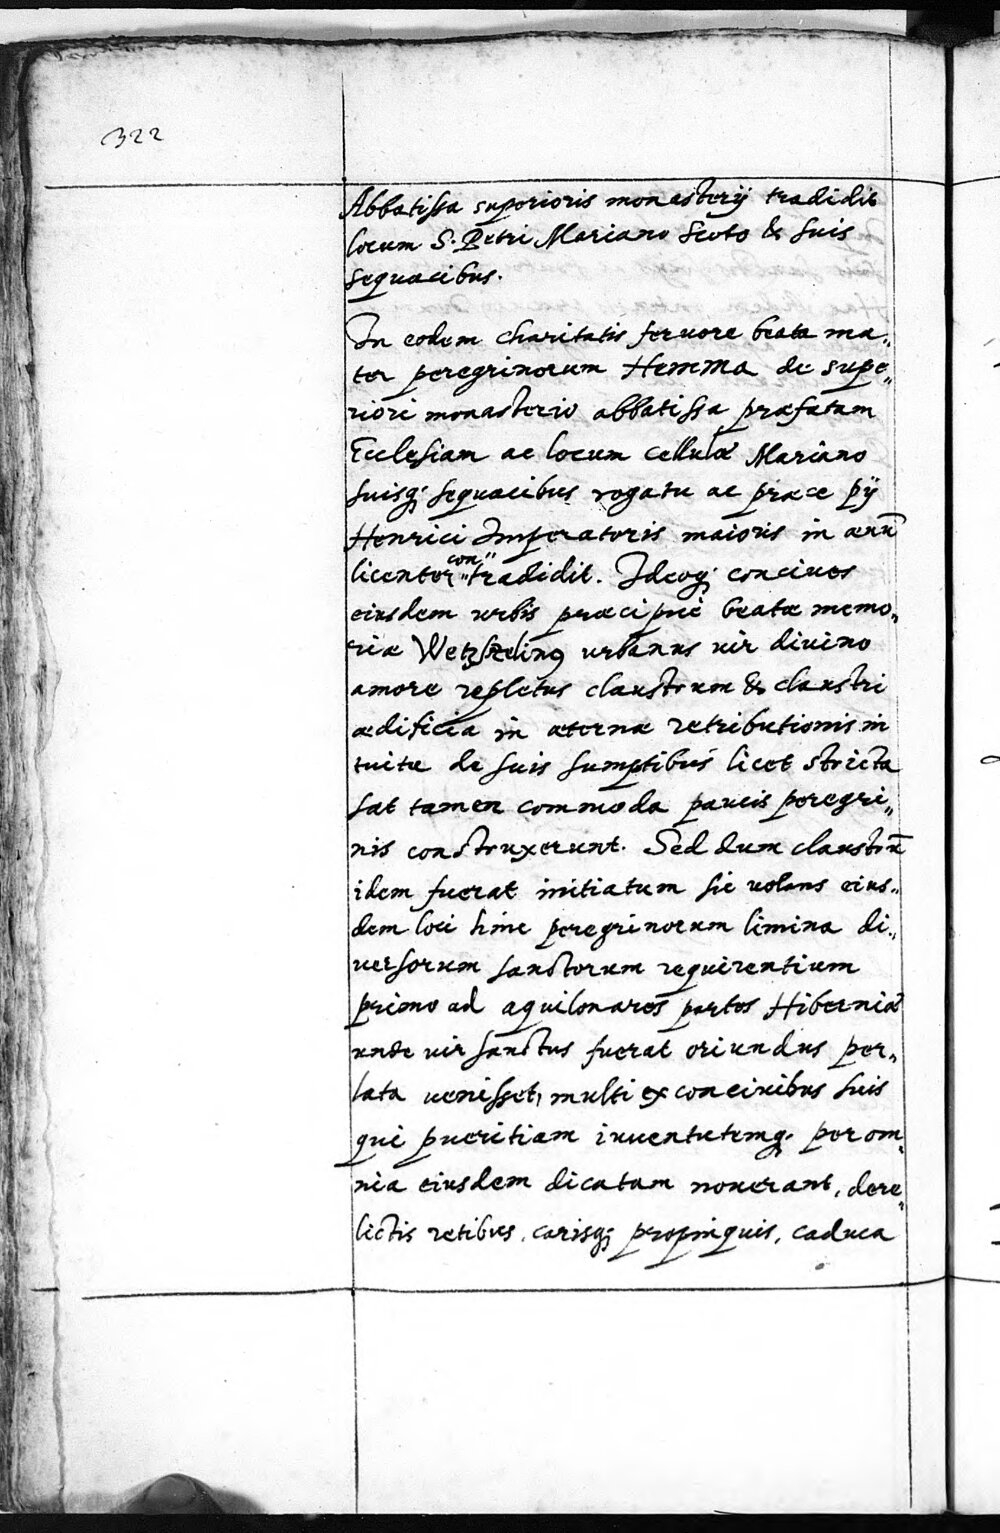 322
Abbatissa superioris monasterij tradidit
locum S. Petri Mariano Scoto & suis
sequacibus.
In eodem charitatis fervore beata ma„
ter peregrinorum Hemma de supe„
riori monasterio abbatissa præfatam
Ecclesiam ac locum cellulæ Mariano
suisq; sequacibus rogatu ac præce pij
Henrici Imperatoris maioris in ævū
licenter con„tradidit. Ideoq; concives
eiusdem urbis præcipuè beatæ memo„
riæ Wetzselinq urbanus vir divino
amore repletus claustrum & claustri
ædificia in æternæ retributionis in
tuitu de suis sumptibus licet stricta
sat tamen commoda paucis peregri„
nis construxerunt. Sed dum claustrū
idem fuerat initiatum sic volans eius„
dem loci hinc peregrinorum limina di„
versorum sanctorum requirentium
primo ad aquilonares partes Hiberniæ
unde vir sanctus fuerat oriundus per„
lata venisset, multi ex concivibus suis
qui pueritiam iuventutemq. per om„
nia eiusdem dicatam noverant, dere„
lictis retibus, carisq; propinquis, caduca